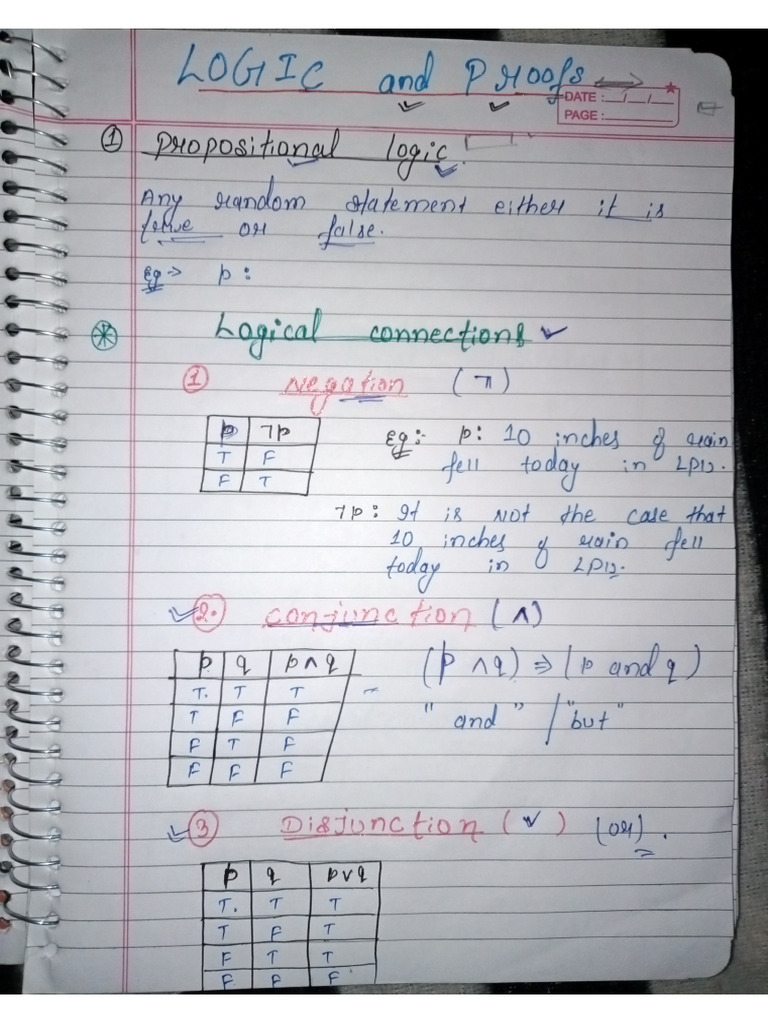 LOGIC and Proofs
DATE : __/__/__
PAGE :
① Propositional logic.
Any random statement either it is
true or false.
Eg → p :
Logical connections
① Negation (¬)
p ¬p
T F
F T
Eg:- p: 10 inches of rain
fell today in LPU.
¬p : It is NOT the case that
10 inches of rain fell
today in LPU.
2. Conjunction (∧)
p q p∧q
T. T T
T F F
F T F
F F F
(p ∧q) ⇒ (p and q)
"and" / "but"
③ Disjunction (∨) (or).
p q p∨q
T. T T
T F T
F T T
F F F